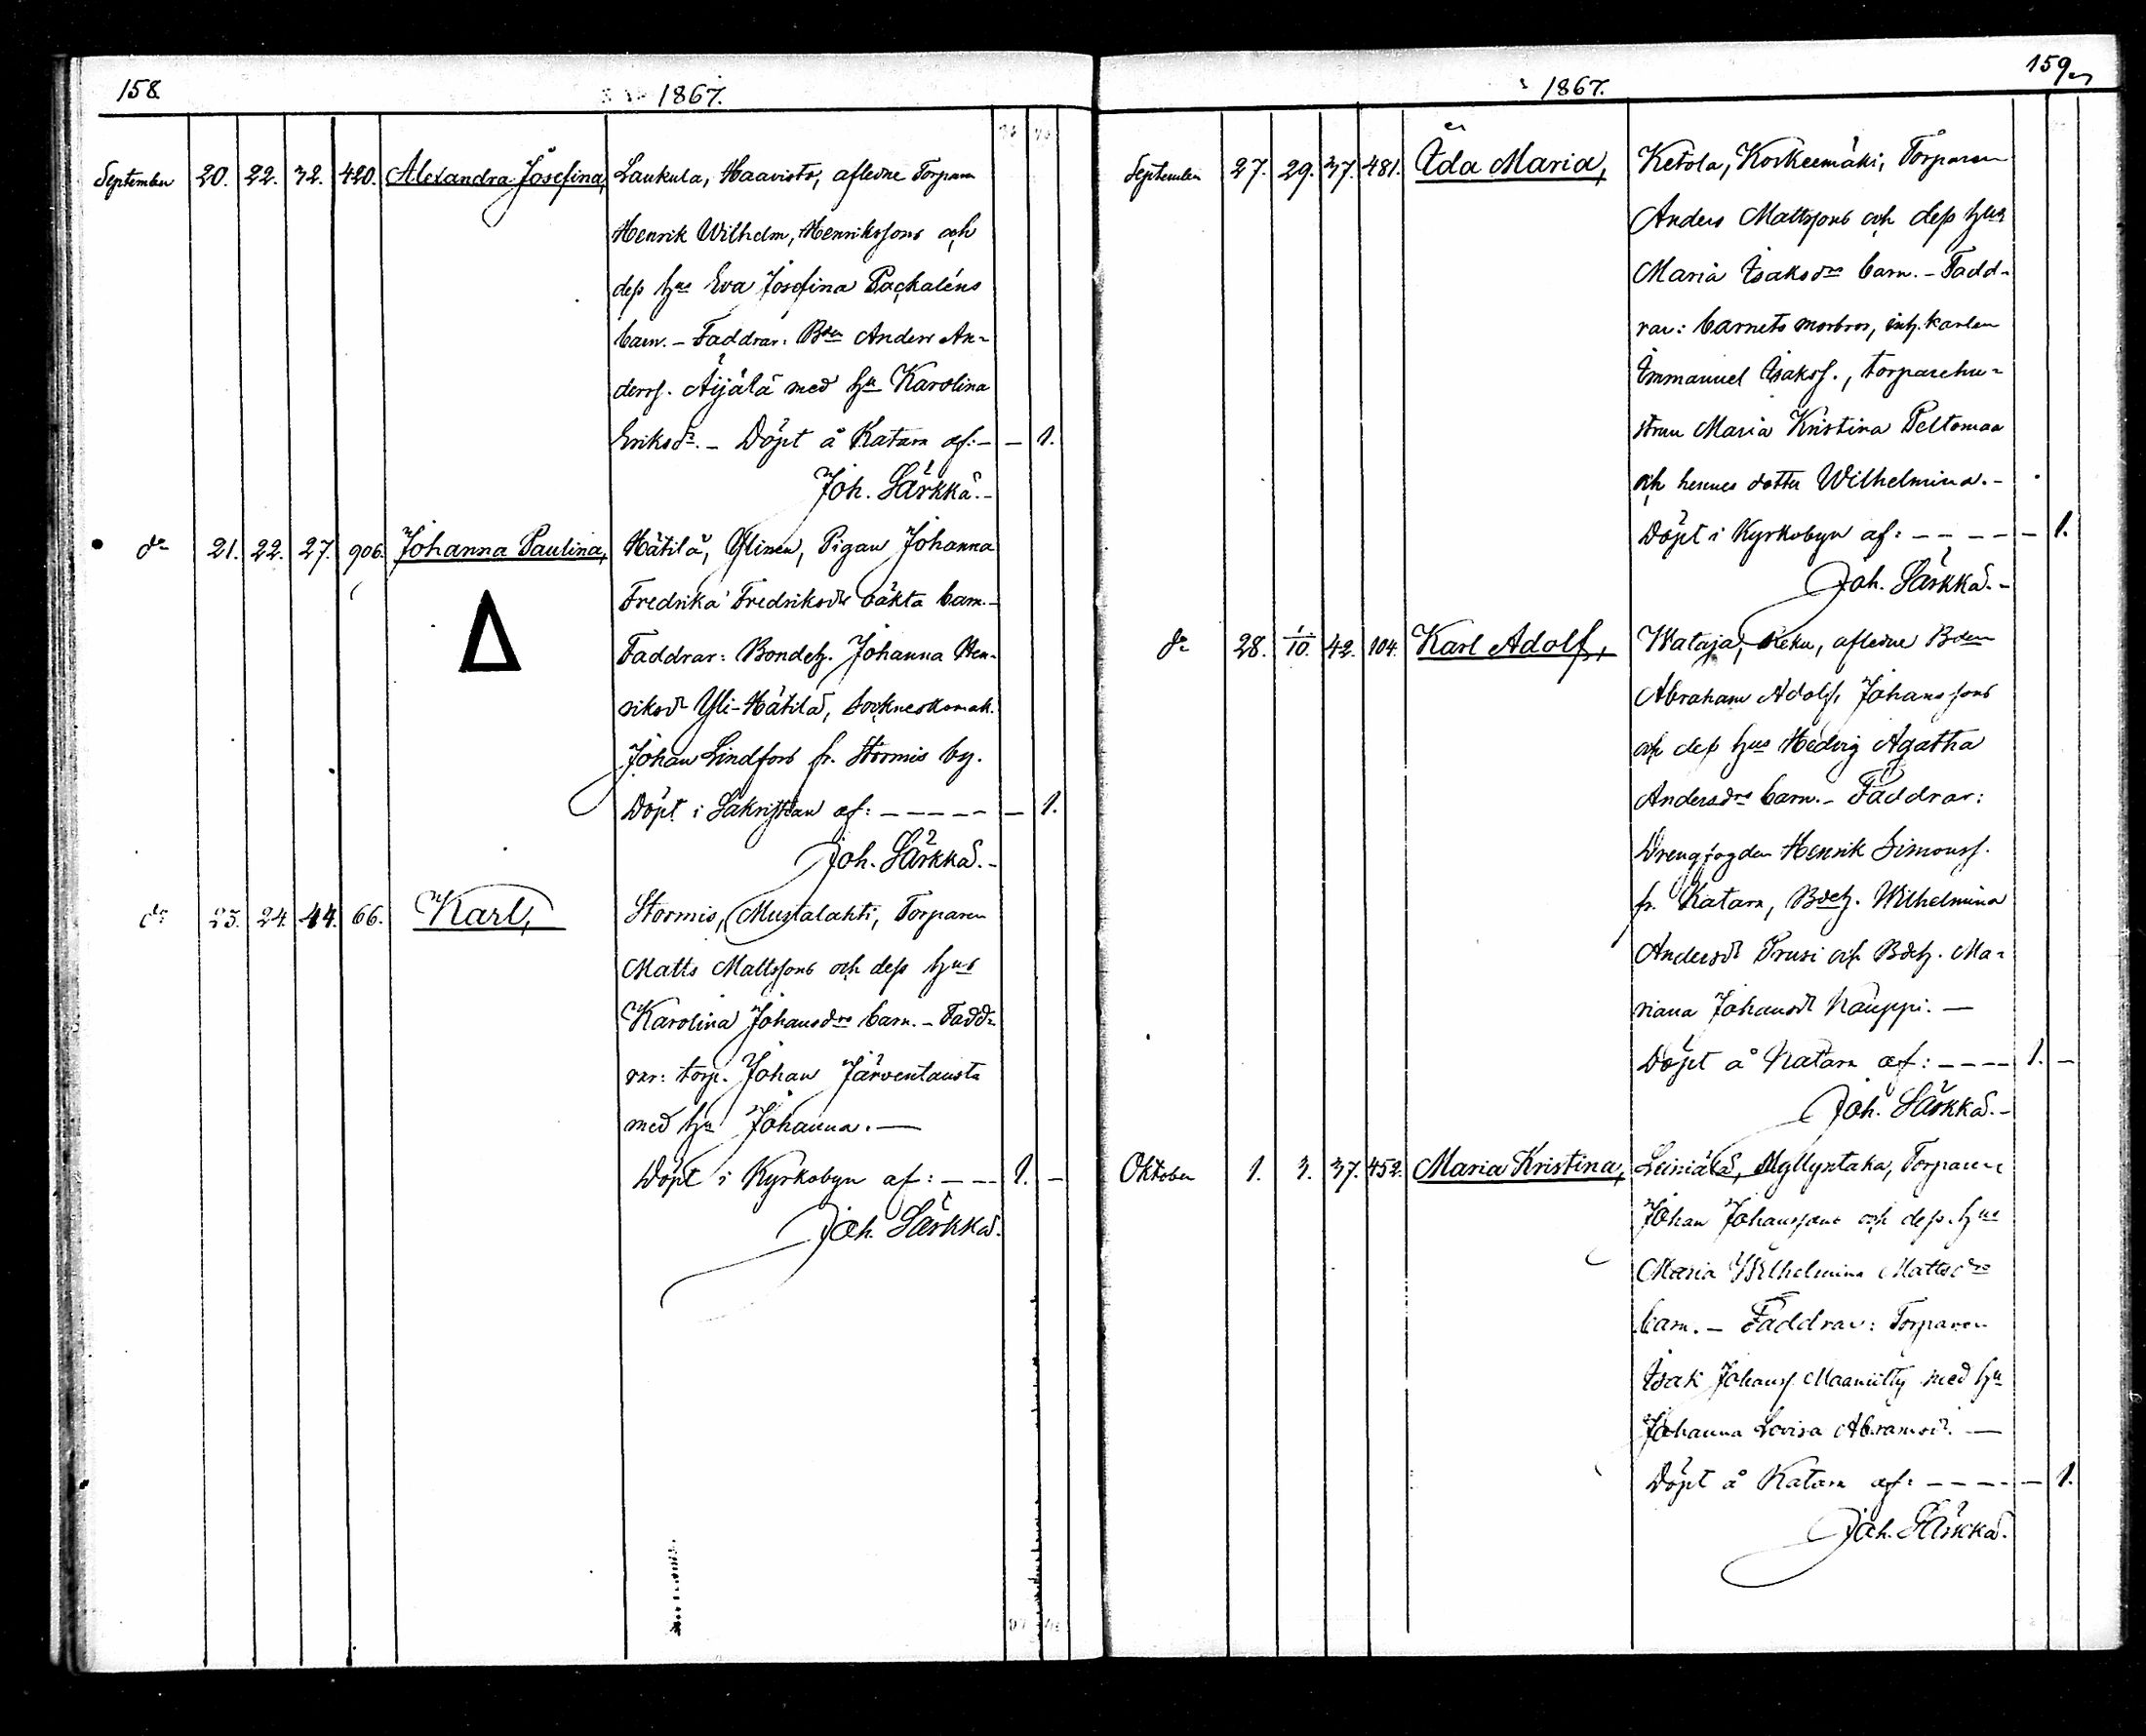 158.
1867.
September 20. 22. 32. 420. Alexandra Josefina, Laukula, Haavisto, aflevne Torparn
Henrik Wilhelm, Henrikssons och
dess hus Eva Josefina Packaléns
barn. – Faddrar: Bden Anders An-
derss. Äijälä med hu Karolina
Eriksdr. – Döpt å Katara af: – – 1.
Joh. Särkkä. –
do 21. 22. 27. 906. Johanna Paulina, Hätilä, Ylinen, Pigan Johanna
Fredrika Fredriksdrs oäkta barn. –
Δ
Faddrar: Bondeh. Johanna Hen-
riksdr Yli-Hätilä, sockneskomak.
Johan Lindfors fr. Stormis by.
Döpt i Sakristian af: – – – – – – 1.
Joh. Särkkä. –
do 23. 24. 44. 66. Karl, Stormis, Mustalahti, Torparen
Matts Mattssons och dess hus
Karolina Johansdrs barn. – Fadd-
rar: torp. Johan Järventausta
med hu Johanna. —
Döpt i Kyrkobyn af: – – – 1. –
Joh. Särkkä.
159.
1867.
September 27. 29. 37. 481. Ida Maria, Ketola, Korkeemäki, Torparen
Anders Mattssons och dess hus
Maria Isaksdrs barn. – Fadd-
rar: barnets morbror, inh. karlen
Immanuel Isakss., torparehu-
strun Maria Kristina Peltomaa
och hennes dotter Wilhelmina. –
Döpt i Kyrkobyn af: – – – – – 1.
Joh. Särkkä. –
do 28. 1/10. 42. 104. Karl Adolf, Wataja, Reku, aflevne Bden
Abraham Adolf Johanssons
och dess hus Hedvig Agatha
Andersdrs barn. – Faddrar:
Drengfogden Henrik Simonss.
fr. Katara, Bdeh. Wilhelmina
Andersdr Prusi och Bdeh. Ma-
riana Johansdr Kauppi. —
Döpt å Katara af: – – – – 1. –
Joh. Särkkä. –
Oktober 1. 3. 37. 452. Maria Kristina, Leiniälä, Myllyntaka, Torparens
Johan Johanssons och dess hus
Maria Wilhelmina Mattsdrs
barn. – Faddrar: Torparen
Isak Johanss. Maaniitty med hu
Johanna Lovisa Abramsdr. —
Döpt å Katara af: – – – – – 1.
Joh. Särkkä.